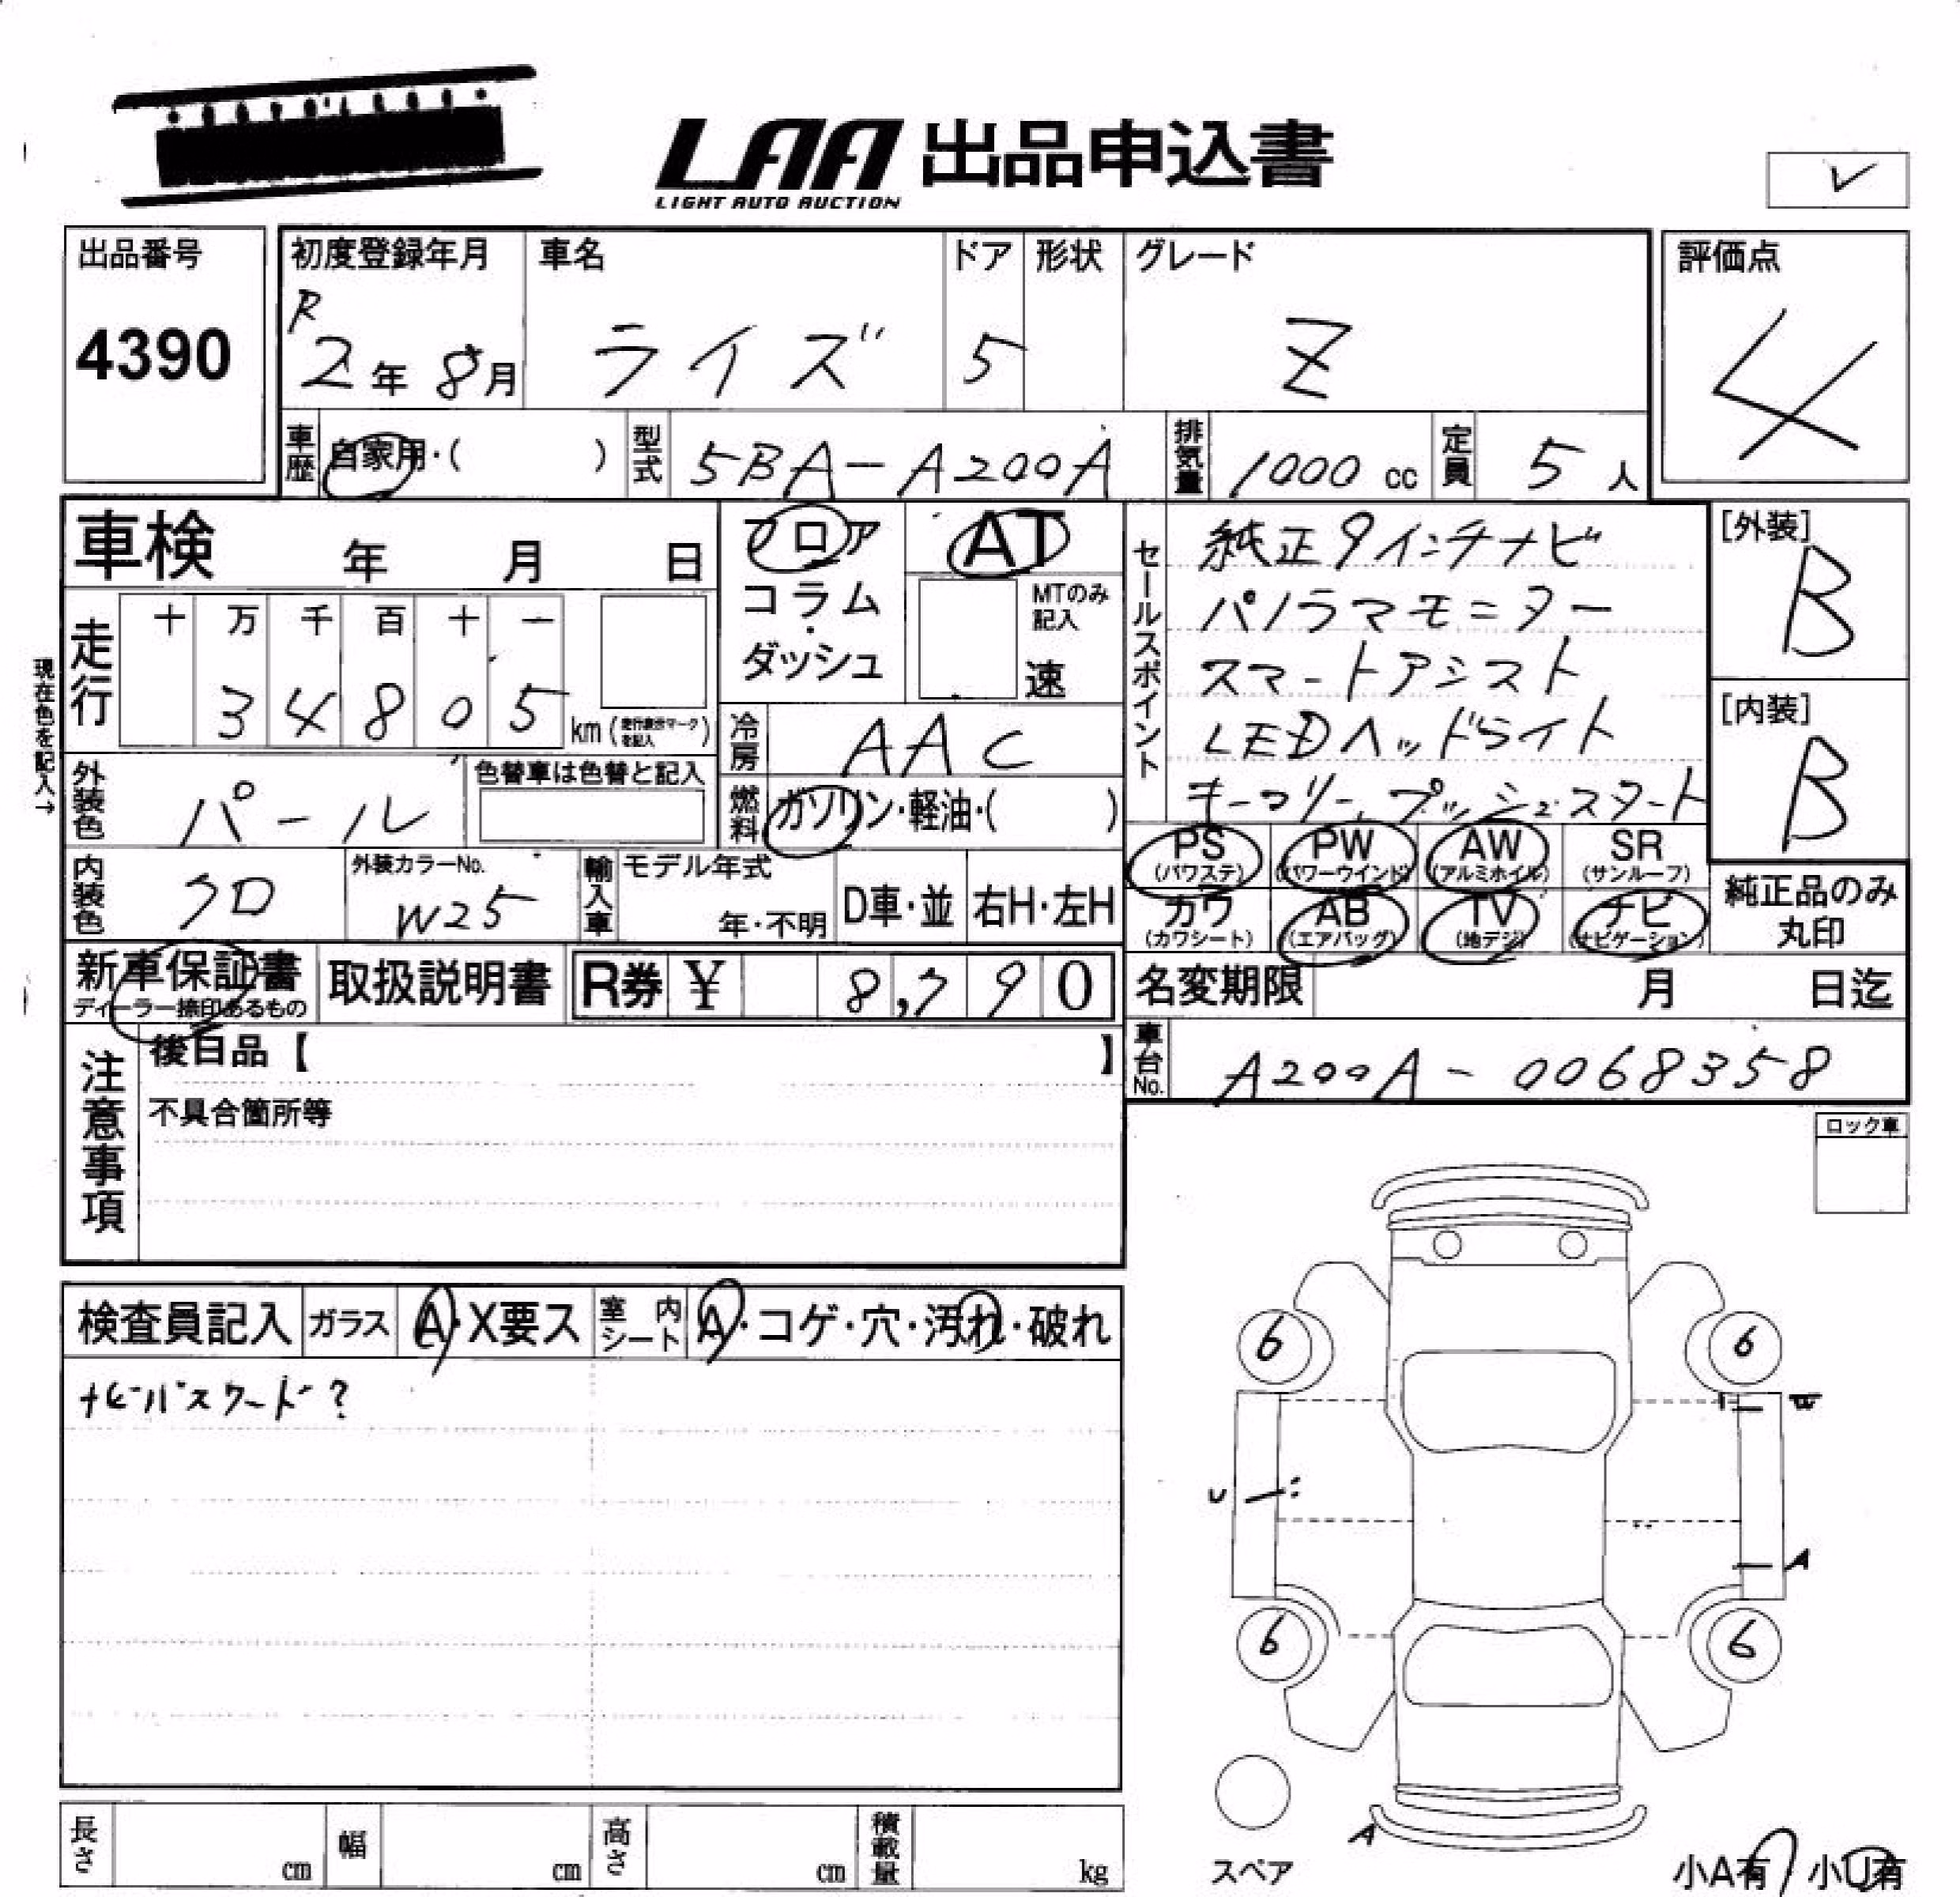 LAA 出品申込書
LIGHT AUTO AUCTION
出品番号
4390
初度登録年月
R
2年 8月
車名
ライズ
ドア
5
形状
グレード
Z
評価点
4
車歴 自家用・( )
型式 5BA-A200A
排気量 1000 cc
定員 5 人
車検 年 月 日
フロア
コラム
・
ダッシュ
AT
MTのみ
記入
速
現在色を記入→
走行
十 万 千 百 十 一
3 4 8 0 5
km (走行表示マークを記入)
冷房 AAC
セールスポイント
純正9インチナビ
パノラマモニター
スマートアシスト
LEDヘッドライト
キーフリー、プッシュスタート
[外装]
B
[内装]
B
外装色 パール
色替車は色替と記入
燃料 ガソリン・軽油・( )
内装色 クロ
外装カラーNo.
W25
輸入車
モデル年式
年・不明
D車・並
右H・左H
PS
(パワステ)
PW
(パワーウインド)
AW
(アルミホイル)
SR
(サンルーフ)
カワ
(カワシート)
AB
(エアバッグ)
TV
(地デジ)
ナビ
(ナビゲーション)
純正品のみ
丸印
新車保証書
ディーラー捺印あるもの
取扱説明書
R券 ¥ 8,790
名変期限 月 日迄
車台No. A200A-0068358
注意事項
後日品【 】
不具合箇所等
ロック車
検査員記入
ガラス A・X要ス
室内シート A・コゲ・穴・汚れ・破れ
ナビパスワード?
6
6
W
U
A
6
6
A
スペア
小A有 / 小U有
長さ cm
幅 cm
高さ cm
積載量 kg